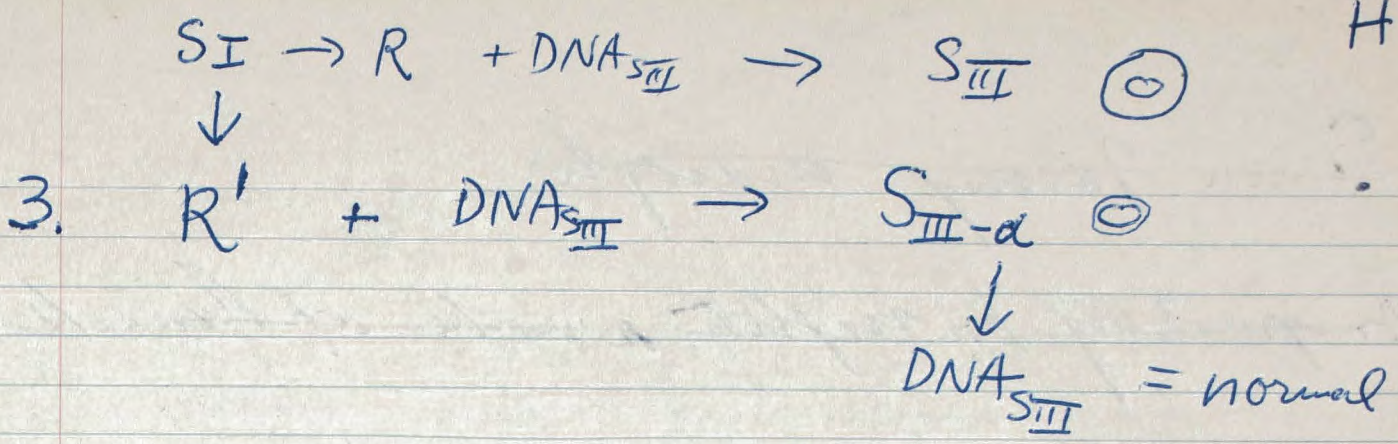 SI → R + DNA SIII → SIII H
↓
3. R' + DNA SIII → SIII-α
↓
DNA SIII = normal